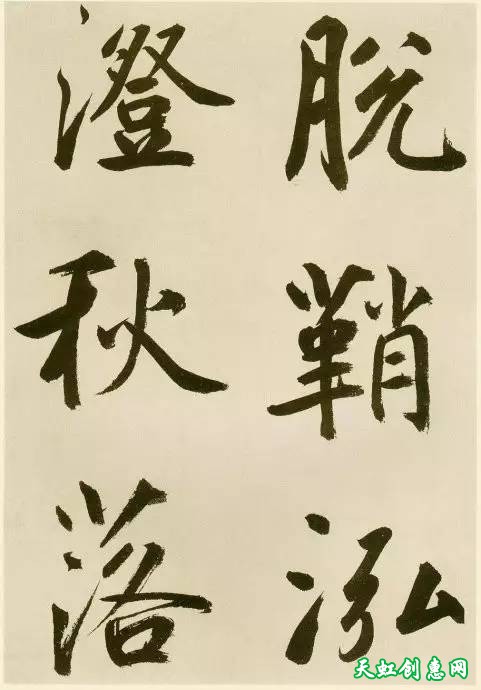 脱鞘泓
澄秋落
天虹创惠网